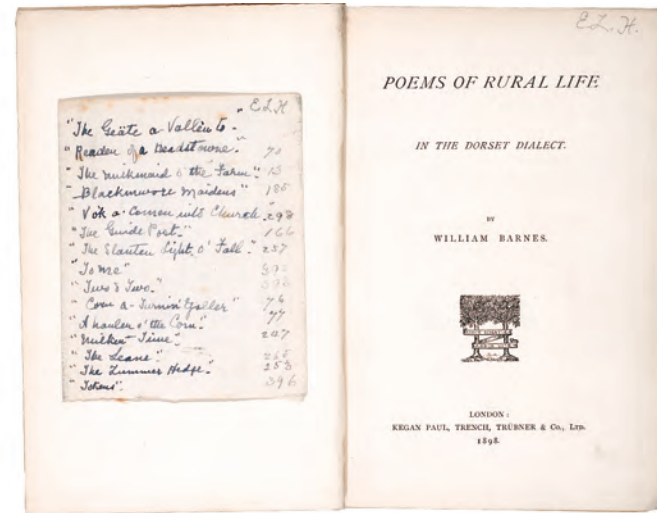 E L H
"The Geäte a Vallèn to-
"Readen of a Headstowne." 70
"The milkmaid o' the Farm". 13
"Blackmwore Maidens" 185
"Vo'k a-Comen into Church. 293
"The Guide Post." 166
"The Slanten Light o' Fall". 237
"To me"
"Two & Two."
"Corn a-Turnin' Yoller" 76
"A haulen o' the Corn". 77
"Milken Time". 207
"The Leane". 265
"The Zummer Hedge". 253
"Tokens". 396
E.L.H.
POEMS OF RURAL LIFE
IN THE DORSET DIALECT.
BY
WILLIAM BARNES.
LONDON:
KEGAN PAUL, TRENCH, TRÜBNER & Co., Ltd.
1898.